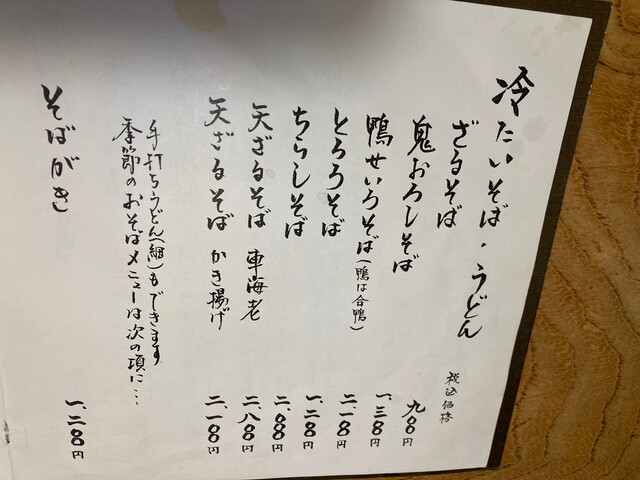 冷たいそば・うどん
税込価格
ざるそば 九〇〇円
鬼おろしそば 一、三〇〇円
鴨せいろそば(鴨は合鴨) 二、一〇〇円
とろろそば 一、二〇〇円
ちらしそば 二、〇〇〇円
天ざるそば 車海老 二、八〇〇円
天ざるそば かき揚げ 二、一〇〇円
手打ちうどん(細)もできます
季節のおそばメニューは次の項に…
そばがき 一、二〇〇円